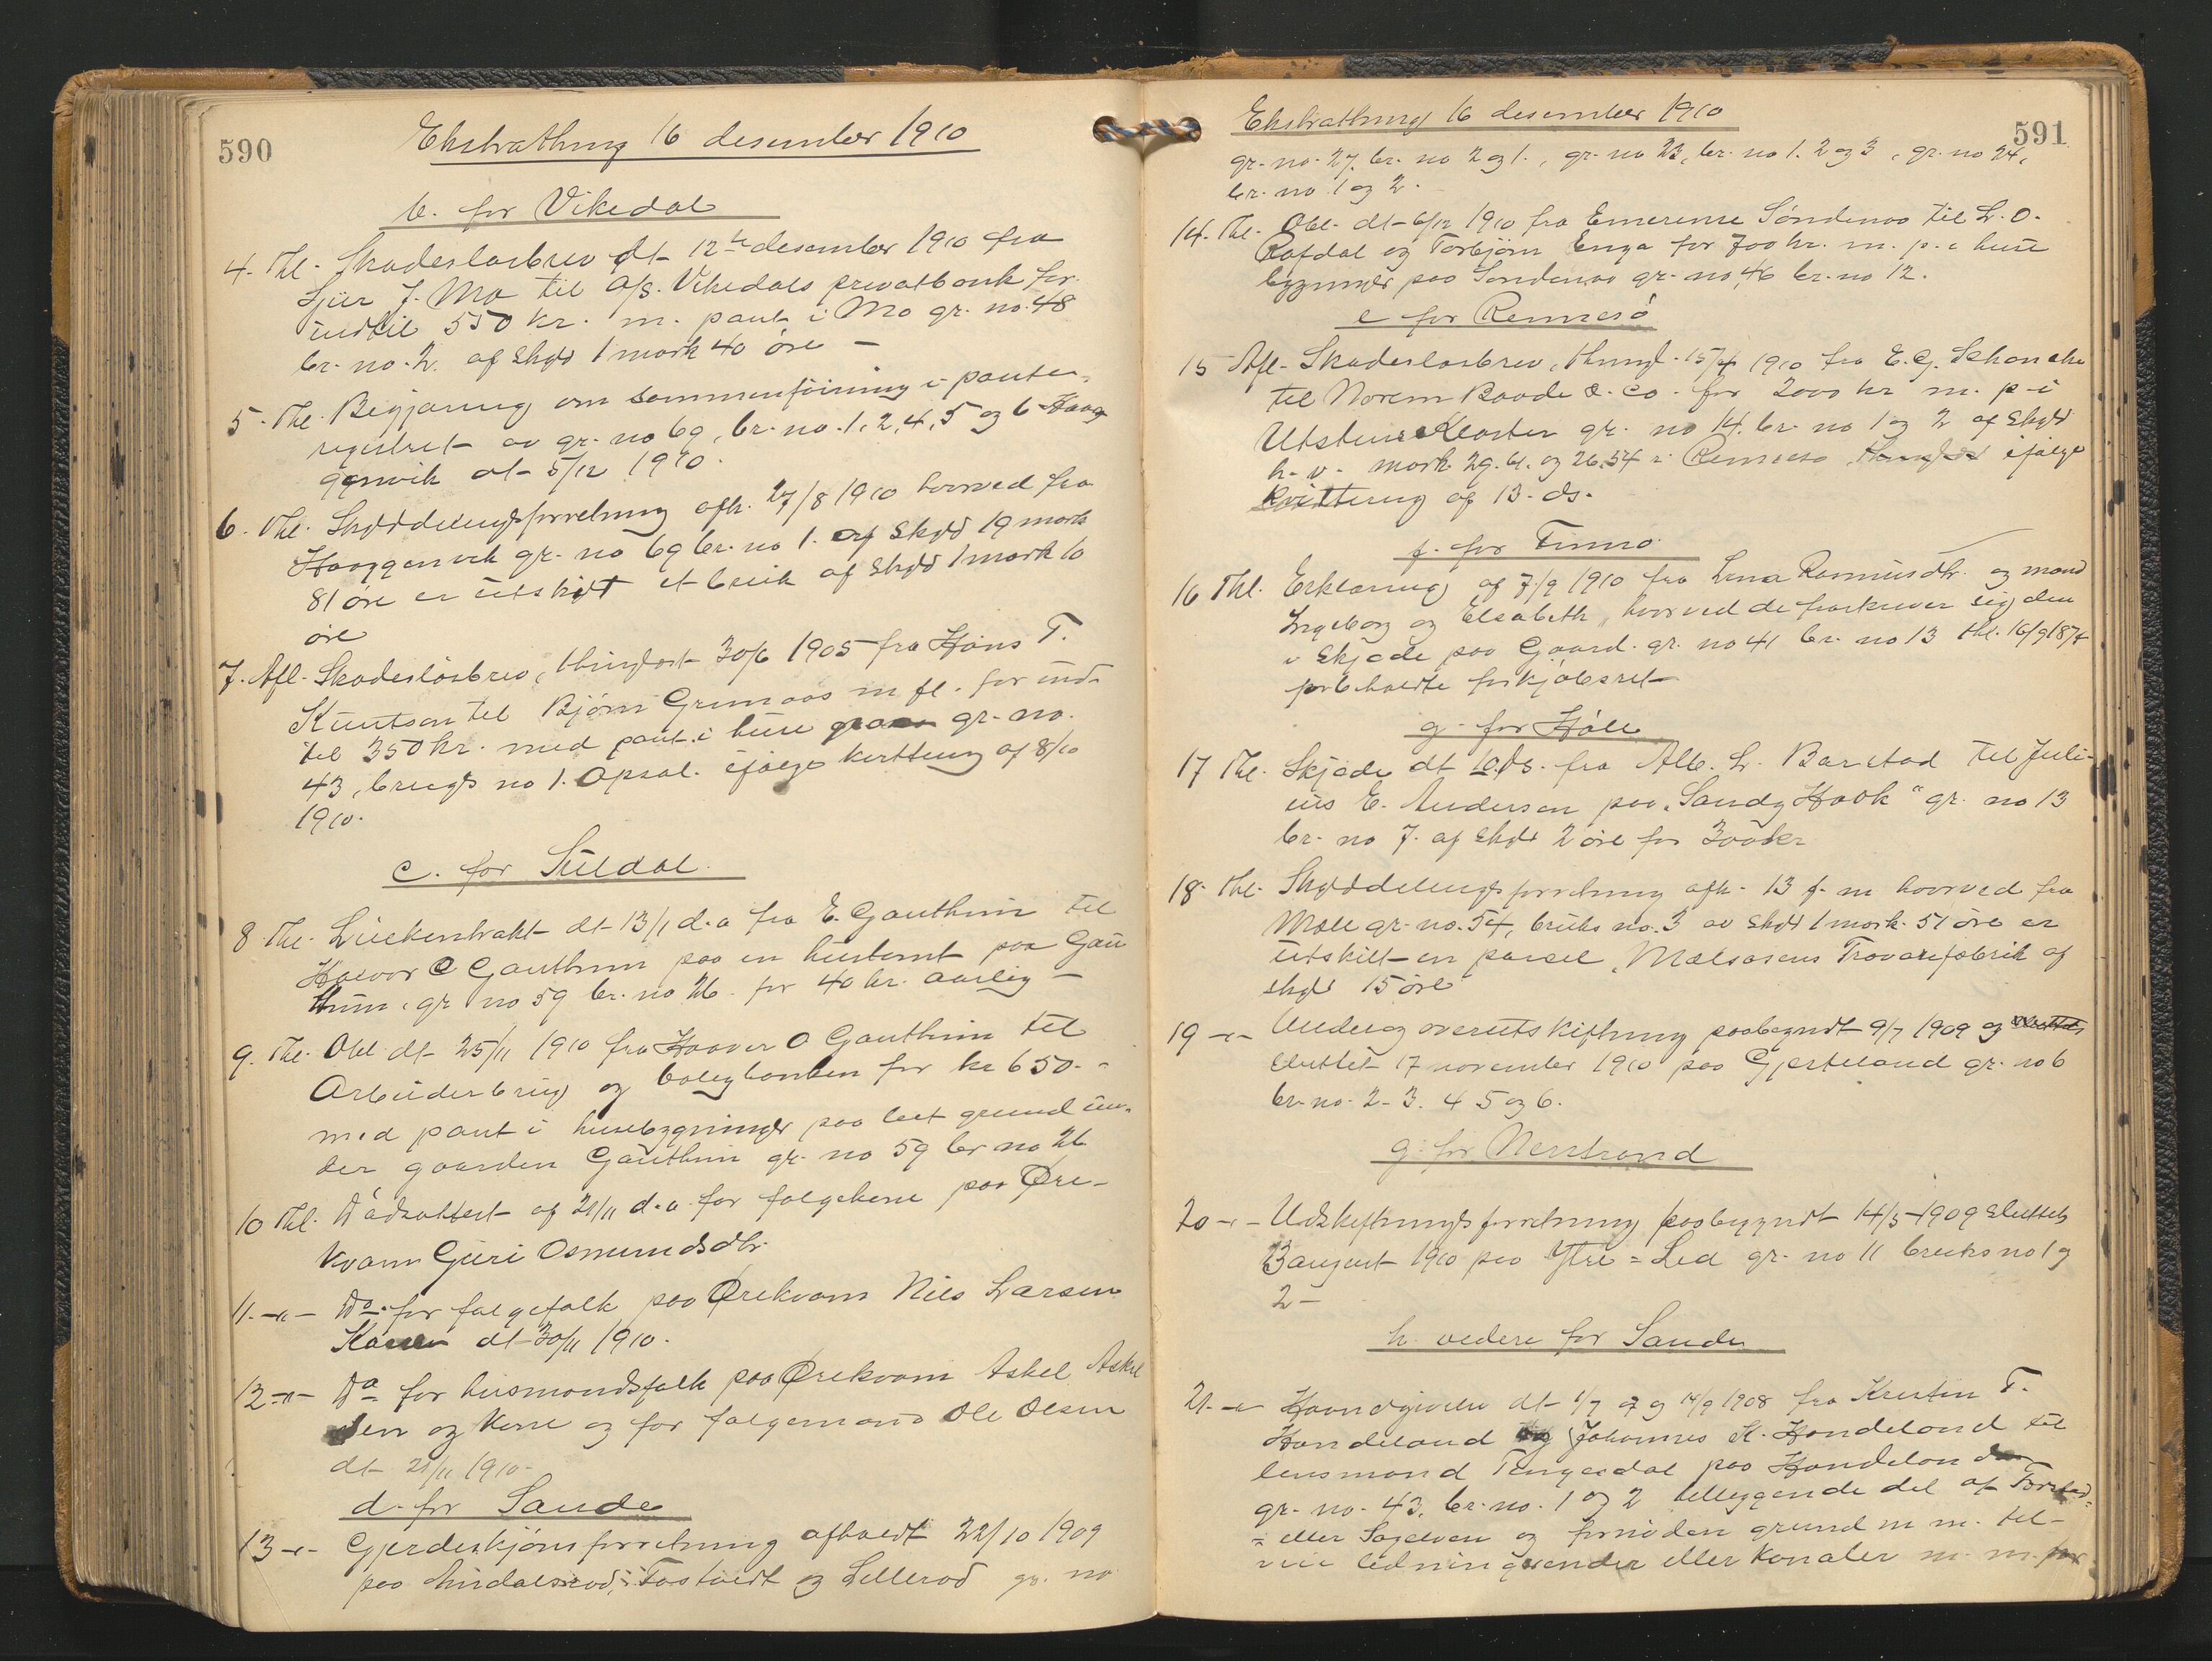 590
Ekstrathing 16 desember 1910
b. for Vikedal
4. Thl. Skadesløsbrev dt 12te desember 1910 fra
Sjur J. Mo til A/S. Vikedals privatbank for
indtil 550 kr. m. pant i Mo gr. no. 48
br. no. 2. af skyld 1 mark 40 øre –
5. Thl. Begjæring om sammenføining i pante-
registret av gr. no 69, br. no. 1, 2, 4, 5 og 6 Haag
genvik dt 5/12 1910.
6. Thl. Skylddelingsforretning afh. 27/8 1910 hvorved fra
Haaggenvik gr. no 69 br. no 1. af skyld 19 mark
81 øre er utskilt et bruk af skyld 1 mark 10
øre
7. Afl. Skadesløsbrev, thinglæst 30/6 1905 fra Hans T.
Knutsen til Bjørn Grimaas m fl. for ind-
til 350 kr. med pant i huse gr. no.
43, brugs no 1. Opsal. ifølge kvittering af 8/10
1910.
c. for Suldal.
8. Thl. Lückenkrakt dt 13/1 d.a fra E. Gauthun til
Halvor O Gauthun paa en hustomt paa Gau
thun, gr no 59 br. no 26 for 40 kr. aarlig –
9. Thl. Obl dt 25/11 1910 fra Haavor O Gauthun til
Arbeiderbrug og boligbanken for kr 650. -
med pant i husebygninger paa leet grund un-
der gaarden Gauthun gr. no 59 br no 26
10 Thl. Dødsattest af 21/11 d.a for følgekone paa Øre-
kvam Guri Osmundsdtr.
11. -"- Do. for følgefolk paa Ørekvam Nils Larsen
Kaari dt 30/11 1910.
12 -"- Do for husmandsfolk paa Ørekvam Askel Askel
sen og kone og for følgemand Ole Olsen
dt 21/11 1910.
d. for Sande
13 -"- Gjerdeskjønsforretning afholdt 22/10 1909
paa Tastveit og Lillerød gr. no
591
Ekstrathing 16 desember 1910
gr. no. 27. br. no 2 og 1., gr. no 23, br. no 1. 2 og 3, gr. no 24,
br. no 1 og 2.
14. Thl. Obl. dt 6/12 1910 fra Emerense Søndenaa til L. O.
Rafdal og Torbjørn Enga for 700 kr. m. p. i huse
bygninger paa Søndenaa gr. no 46 br. no 12.
e for Rennesø
15 Afl. Skadesløsbrev, thingl. 15/4 1910 fra E. G. Schanche
til Norem Baade & Co. for 2000 kr m. p. i
Utstein Kloster gr. no 14. br. no 1 og 2 af skyld
h. v. mark 29.61. og 26.54 i Rennesø ifølge
kvittering af 13. ds.
f. for Finnø
16 Thl. Erklæring af 7/9 1910 fra Lina Rasmusdtr. og mand
Ingeborg og Elsabeth, hvorved de fraskriver sig den
i skjøde paa Gaard. gr. no 41 br. no 13 thl. 16/9 1874
forbeholdte forkjøbsret
g. for Høle
17 Thl. Skjøde dt 10. ds. fra Alb. L. Barstad til Juli-
us E. Andersen paa "Sandy Hook" gr. no 13
br. no 7. af skyld 2 øre for 300 kr
18. Thl. Skylddelingsforretning afh. 13 f. m hvorved fra
Mæle gr. no. 54, bruks no. 3 av skyld 1 mark 51 øre er
utskilt en parsel "Mælsosens Trævarefabrik af
skyld 15 øre
19 -"- Under og overutskiftning paabegyndt 9/7 1909 og
sluttet 17 november 1910 paa Gjerteland gr. no 6
br. no. 2. 3. 4 5 og 6.
g. for Nerstrand
20 -"- Udskiftningsforretning paabegyndt 14/5 1909 sluttet
23 august 1910 paa Ytre = Lid gr. no 11 bruks no 1 og
2 –
h. videre for Sande
21. -"- Haandgivelse dt 1/7 og 14/9 1908 fra Kristen T.
Handeland og Johannes K. Handeland til
lensmand Tengesdal paa Handeland
gr. no. 43. br. no. 1 og 2 tilliggende del af
= eller Sagelven og fornøden grund m m. til-
ledninger eller kanaler m. m. for